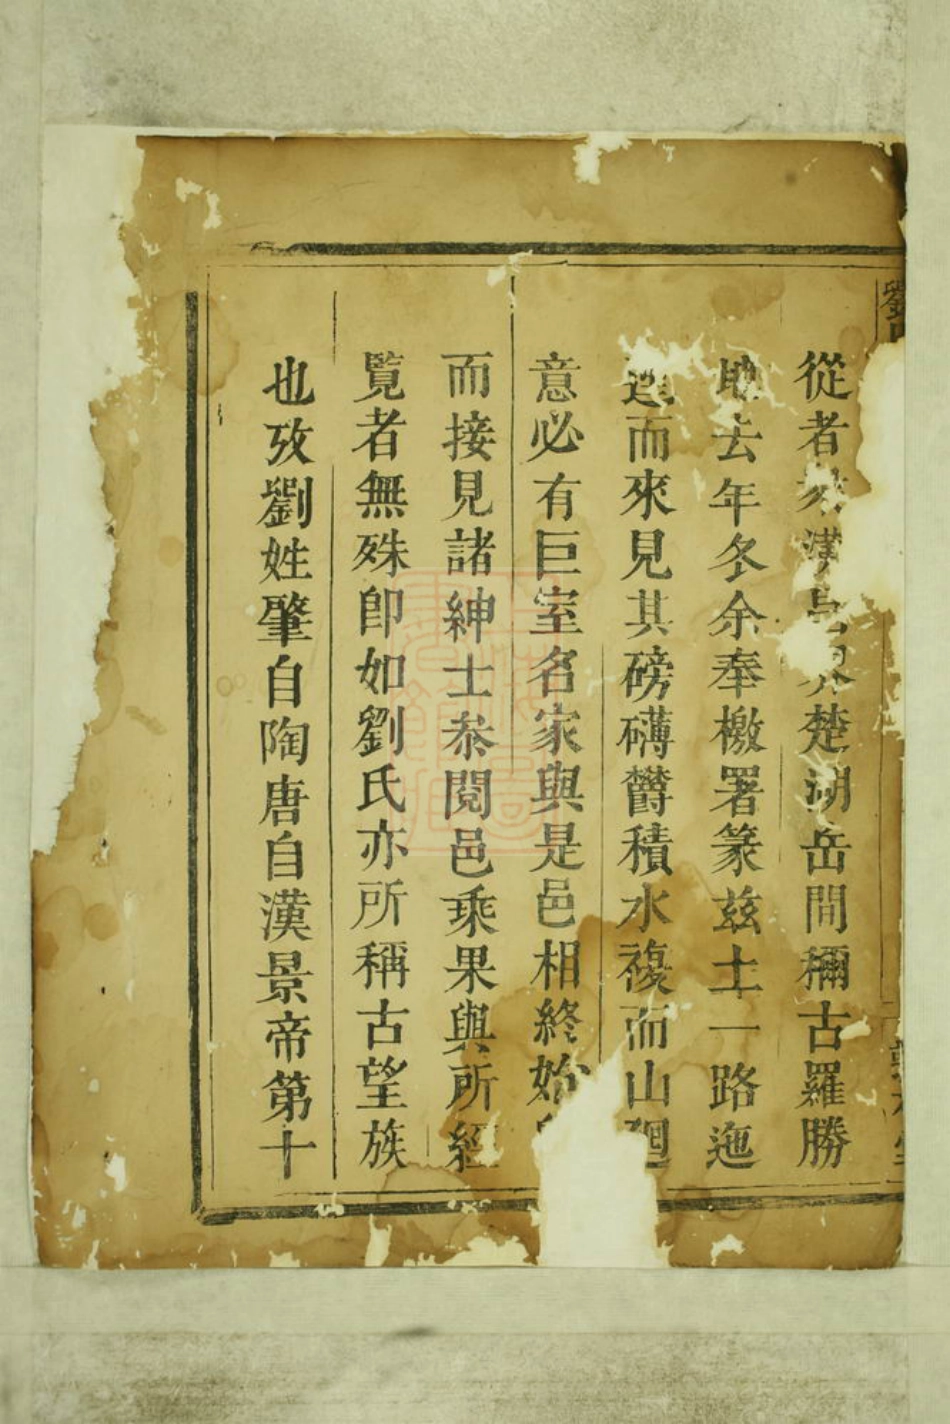 劉
從者
楚湖岳間稱古羅勝
地去年冬余奉檄署篆茲土一路迤
邐而來見其磅礴欝積水複而山廻
意必有巨室名家與是邑相終始
而接見諸紳士叅閱邑乘果與所經
覽者無殊卽如劉氏亦所稱古望族
也攷劉姓肇自陶唐自漢景帝第十